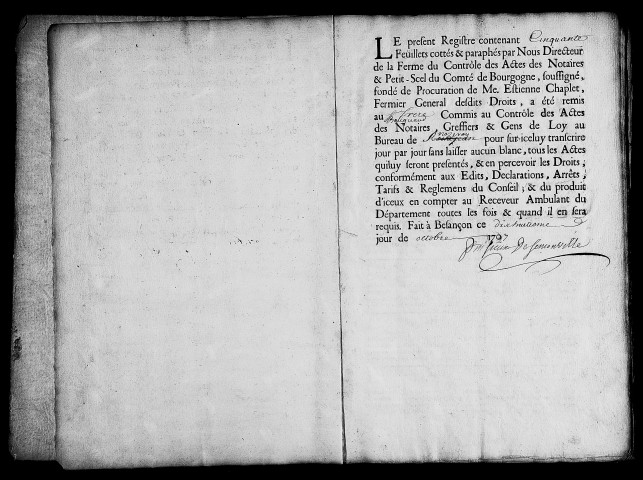 LE present Registre contenant Cinquante
Feuillets cottés & paraphés par Nous Directeur
de la Ferme du Contrôle des Actes des Notaires
& Petit-Scel du Comté de Bourgogne, soussigné,
fondé de Procuration de Me. Estienne Chaplet,
Fermier General desdits Droits, a été remis
au Commis au Contrôle des Actes
des Notaires, Greffiers & Gens de Loy au
Bureau de pour sur-iceluy transcrire
jour par jour sans laisser aucun blanc, tous les Actes
qui luy seront presentés, & en percevoir les Droits,
conformément aux Edits, Declarations, Arrêts,
Tarifs & Reglemens du Conseil; & du produit
d'iceux en compter au Receveur Ambulant du
Département toutes les fois & quand il en sera
requis. Fait à Besançon ce dixhuitieme
jour de octobre